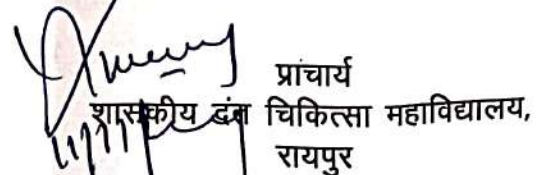 प्रांचार्य
शासकीय दंत चिकित्सा महाविद्यालय,
रायपुर